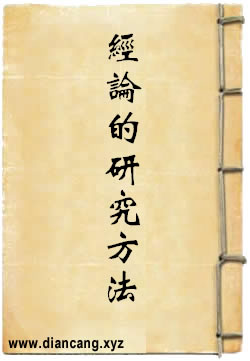 經論的研究方法
www.diancang.xyz